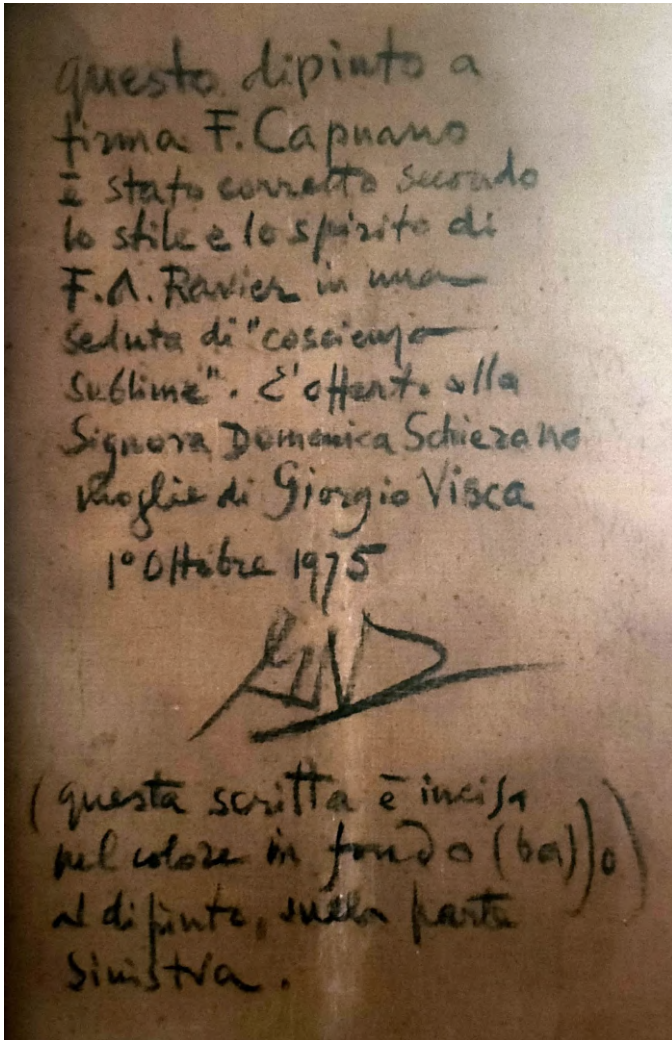 questo dipinto a
firma F. Capuano
è stato corretto secondo
lo stile e lo spirito di
F.A. Ravier in una
seduta di "coscienza
sublime". E' offerto alla
Signora Domenica Schierano
moglie di Giorgio Visca
1° Ottobre 1975
(questa scritta è incisa
nel colore in fondo (basso)
al dipinto, sulla parte
sinistra.